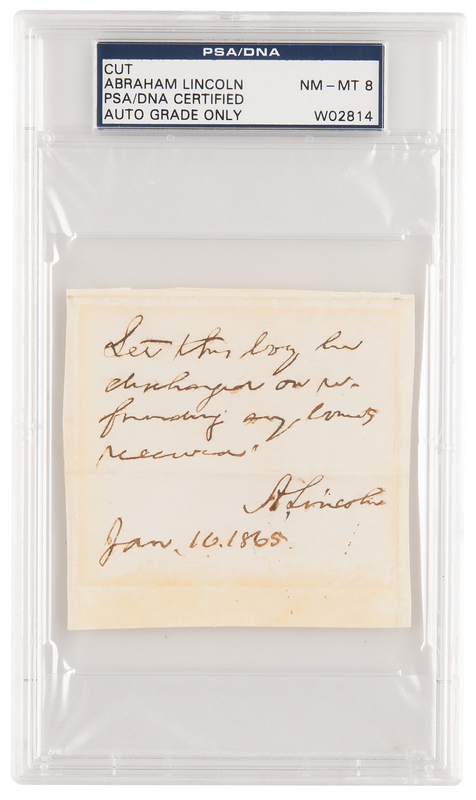 PSA/DNA
CUT
ABRAHAM LINCOLN
PSA/DNA CERTIFIED
AUTO GRADE ONLY
NM-MT 8
W02814
Let this boy be
discharged on re-
funding any bounty
received.
A. Lincoln
Jan. 10. 1865